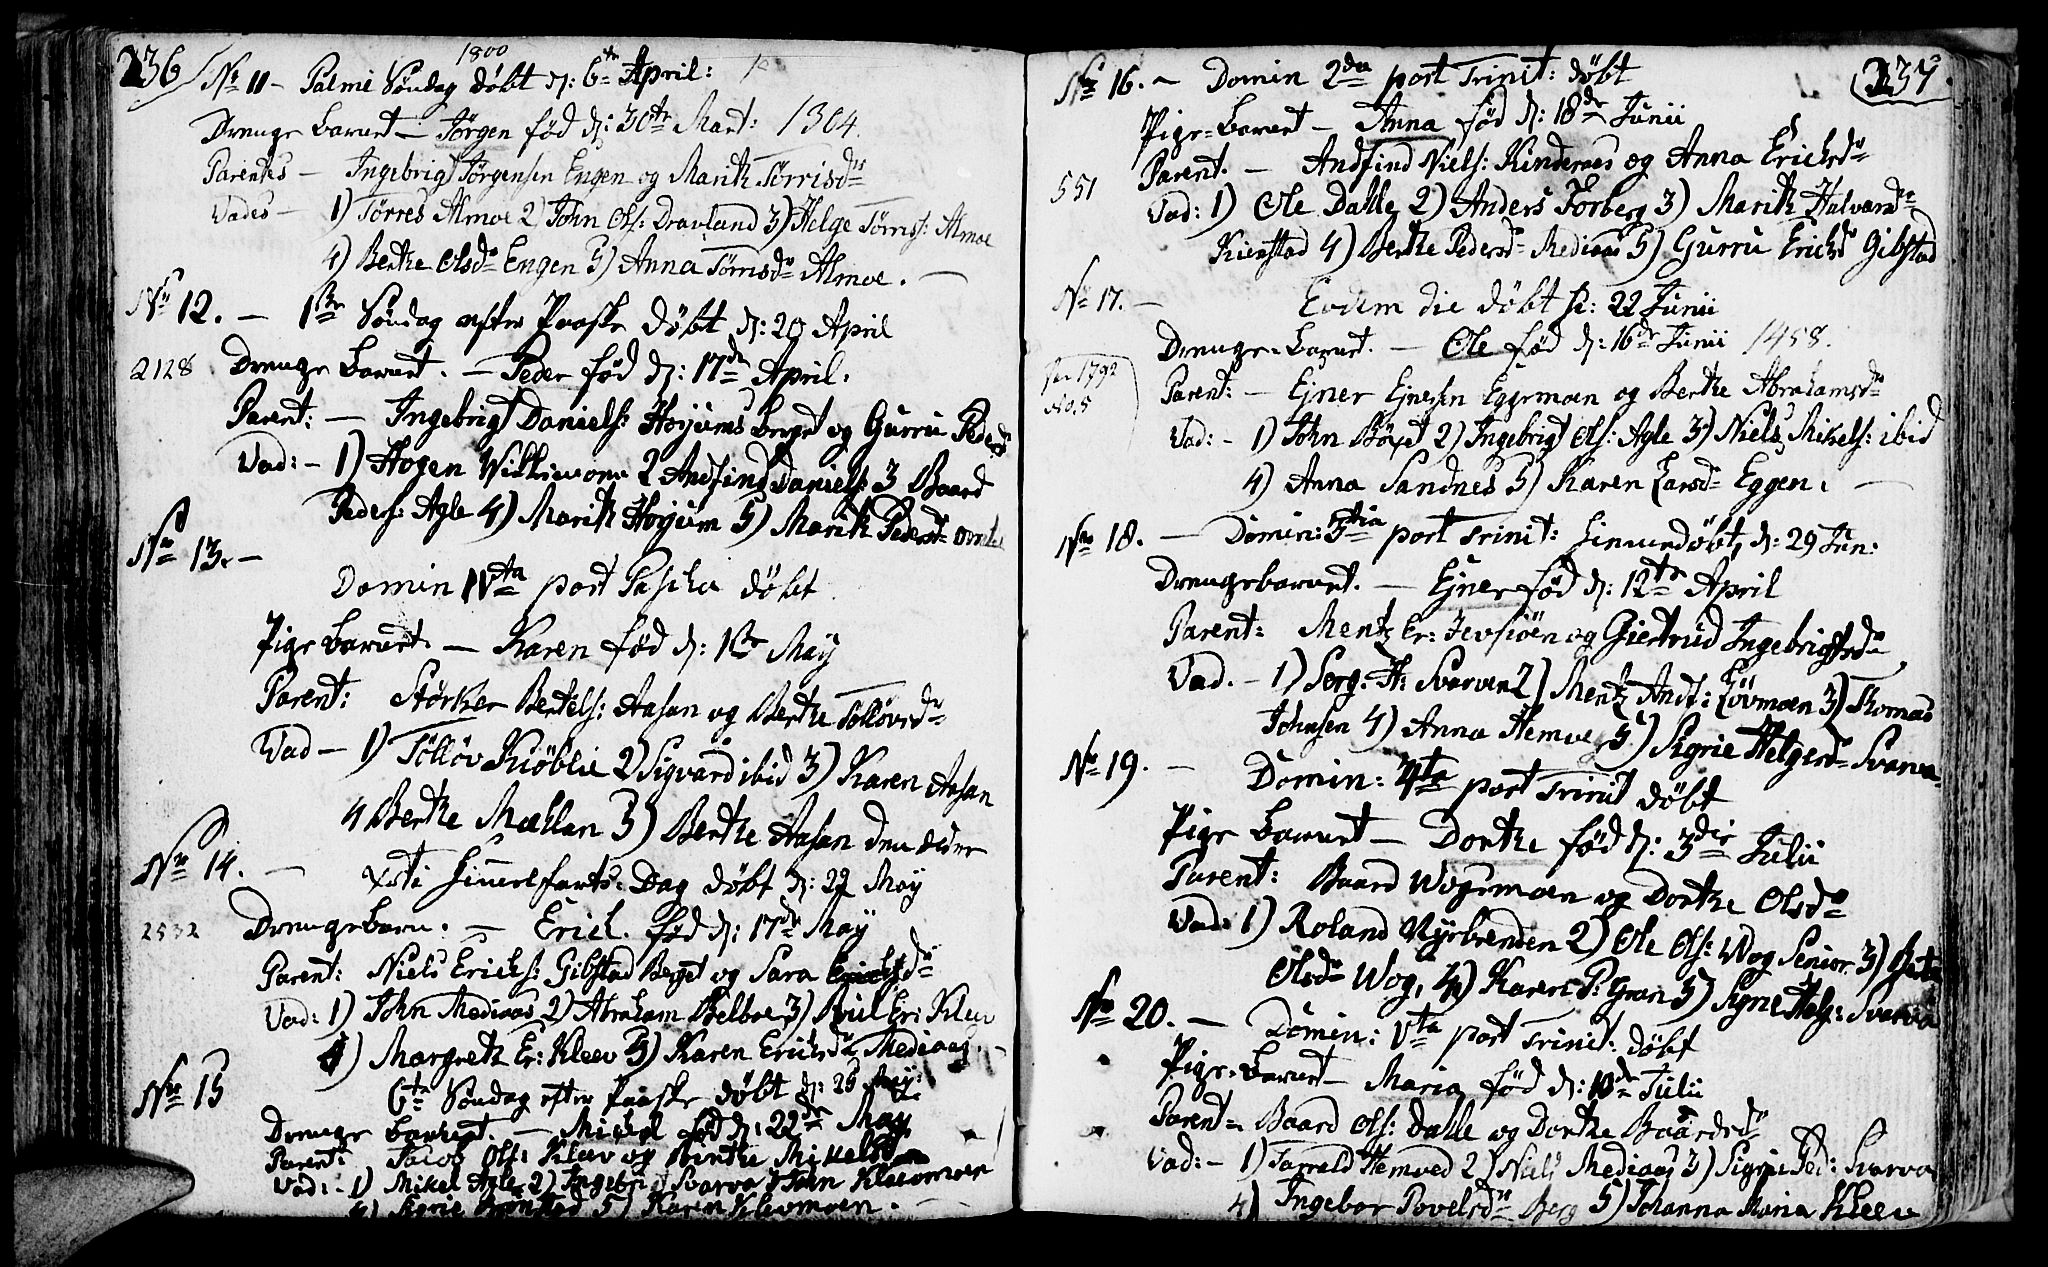 236
1800
No 11 - Palmi Søndag døbt d: 6te April:
Drenge barnet - Jörgen fød d: 30te Mart: 1304.
Parentes - Ingebrigt Jörgensen Engen og Marith Törrisdr
Vades - 1) Törres Almoe 2) John Ols: Dravland 3) Helge Törrisd: Almoe
4) Berthe Olsdr Engen 5) Anna Törrisdr Almoe. -
No 12. - 1ste Søndag efter Paaske døbt d: 20 April
2128 Drenge barnet. - Peder fød d: 17de April.
Parent: - Ingebrigt Daniels: Høyums berget og Gurru Peders
Vad: - 1) Hogen 2 Andfind Daniels: 3 Baard
Peders: Agle 4) Marith Høyum 5) Marith Pedersdr
No 13. -
Domin IVta post Pascha døbt
Pige barnet. - Karen fød d: 1ste May
Parent: Störker Bertels: Aasan og Berthe Tollövsdr
Vad - 1) Tollöv Kiöblie 2) Sigvard ibid 3) Karen Aasan
4 Berthe Mæhlan 5) Berthe Aasan den ælder
No 14. - Xsti Himmelfarts-Dag døbt d: 22 May
2532 Drengebarn. - Erich. fød d: 17de May
Parent: Niels Erichs: Gibstad Berget og Sara Erichsdr
Vad: 1) John Mediaas 2) Abraham Belboe 3) Poul Er: Kleev
4) Margreth Er: Kleev 5) Karen Erichsdr Mediaas. -
No 15 6te Søndag efter Paaske døbt d: 25 May:
Drenge barnet. - Mickel fød d: 22de May
Parent: Jacob Ols: Kleev og Berthe Mikelsdr
Vad: - 1) Mikel Agle 2) Ingebr: Svarva 3 John Kleevmoen
4) Sigrie Brönstad 5) Karen Klevmoen.
237.
No 16. - Domin 2da post Trinit: døbt
Pige-barnet - Anna fød d: 18de Junii
Parent. - Andfind Niels: Kinderaas og Anna Erichsdr
551 Vad: 1) Ole Dahle 2) Anders Forberg 3) Marith Halvorsdr
Kierstad 4) Berthe Pedersdr Mediaas 5) Gurru Erichsd Gibstad
No 17. - Eodem die døbt d: 22 Junii
Drenge-barnet. - Ole fød d: 16de Junii 1458.
1792 No. 5
Parent: - Ejner Ejnersen Eggermoen og Berthe Abrahamsdr
Vad: - 1) John 2) Ingebrigt Ols: Agle 3) Niels Mikels: ibid
4) Anna Sandnes 5) Karen Larsdr Eggen. -
No 18. - Domin: 3tia post Trinit: hiemmedøbt, d: 29 Jun:
Drengebarnet. - Ejner fød d: 12te April
Parent: Mentz Er: Sevsiöen og Giertrud Ingebrigtsdr
Vad. - 1) Serg: H: Svarven 2) Mentz And: Lövmoen 3) Thomas
Johnsen 4) Anna Hemoe 5) Sigrie Helgesdr Svarva
No 19. - Domin: 4ta post Trinit døbt
Pige barnet - Dorthe fød d: 3die Julii
Parent: Baard Wogsmoen og Dorthe Olsdr
Vad: 1) Roland Nyebrenden 2) Ole Ols: Wog Senior 3)
Olsdr Wog, 4) Karen P: Gran 5) Signe Helg: Svarva
No 20. - Domin: Vta post Trinit: døbt
Pige-barnet - Maria fød d: 10de Julii
Parent. Baard Ols: Dahle og Dorthe Baardsdr
Vad: - 1) Tarrald Hemoed 2) Niels Mediaas 3) Sigrie Ped: Svarva
4) Ingebor Povelsdr Berg 5) Johanna Maria Kleev